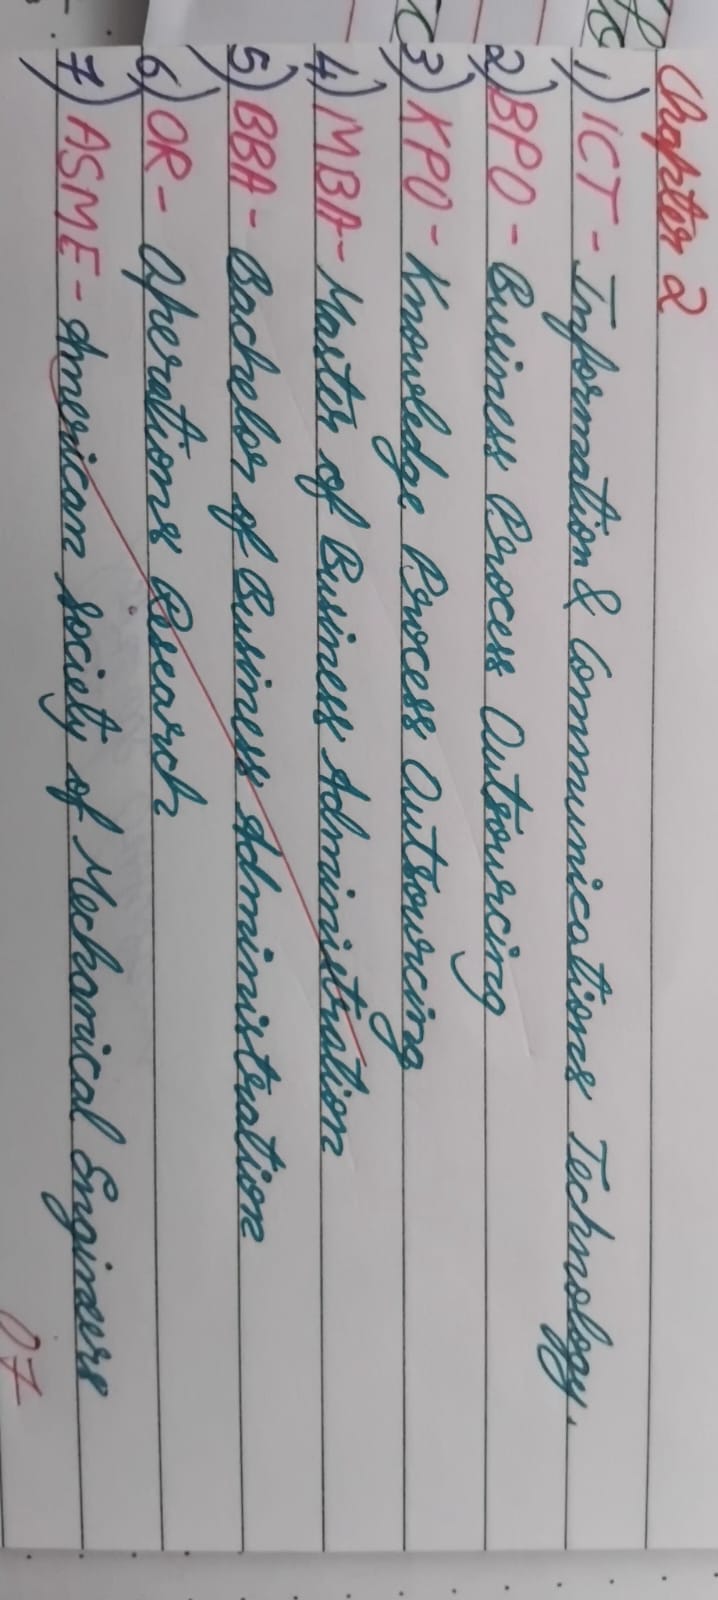 Chapter 2
1) ICT - Information & Communications Technology.
2) BPO - Business Process Outsourcing
3) KPO - Knowledge Process Outsourcing
4) MBA - Master of Business Administration
5) BBA - Bachelor of Business Administration
6) OR - Operations Research
7) ASME - American Society of Mechanical Engineers
07